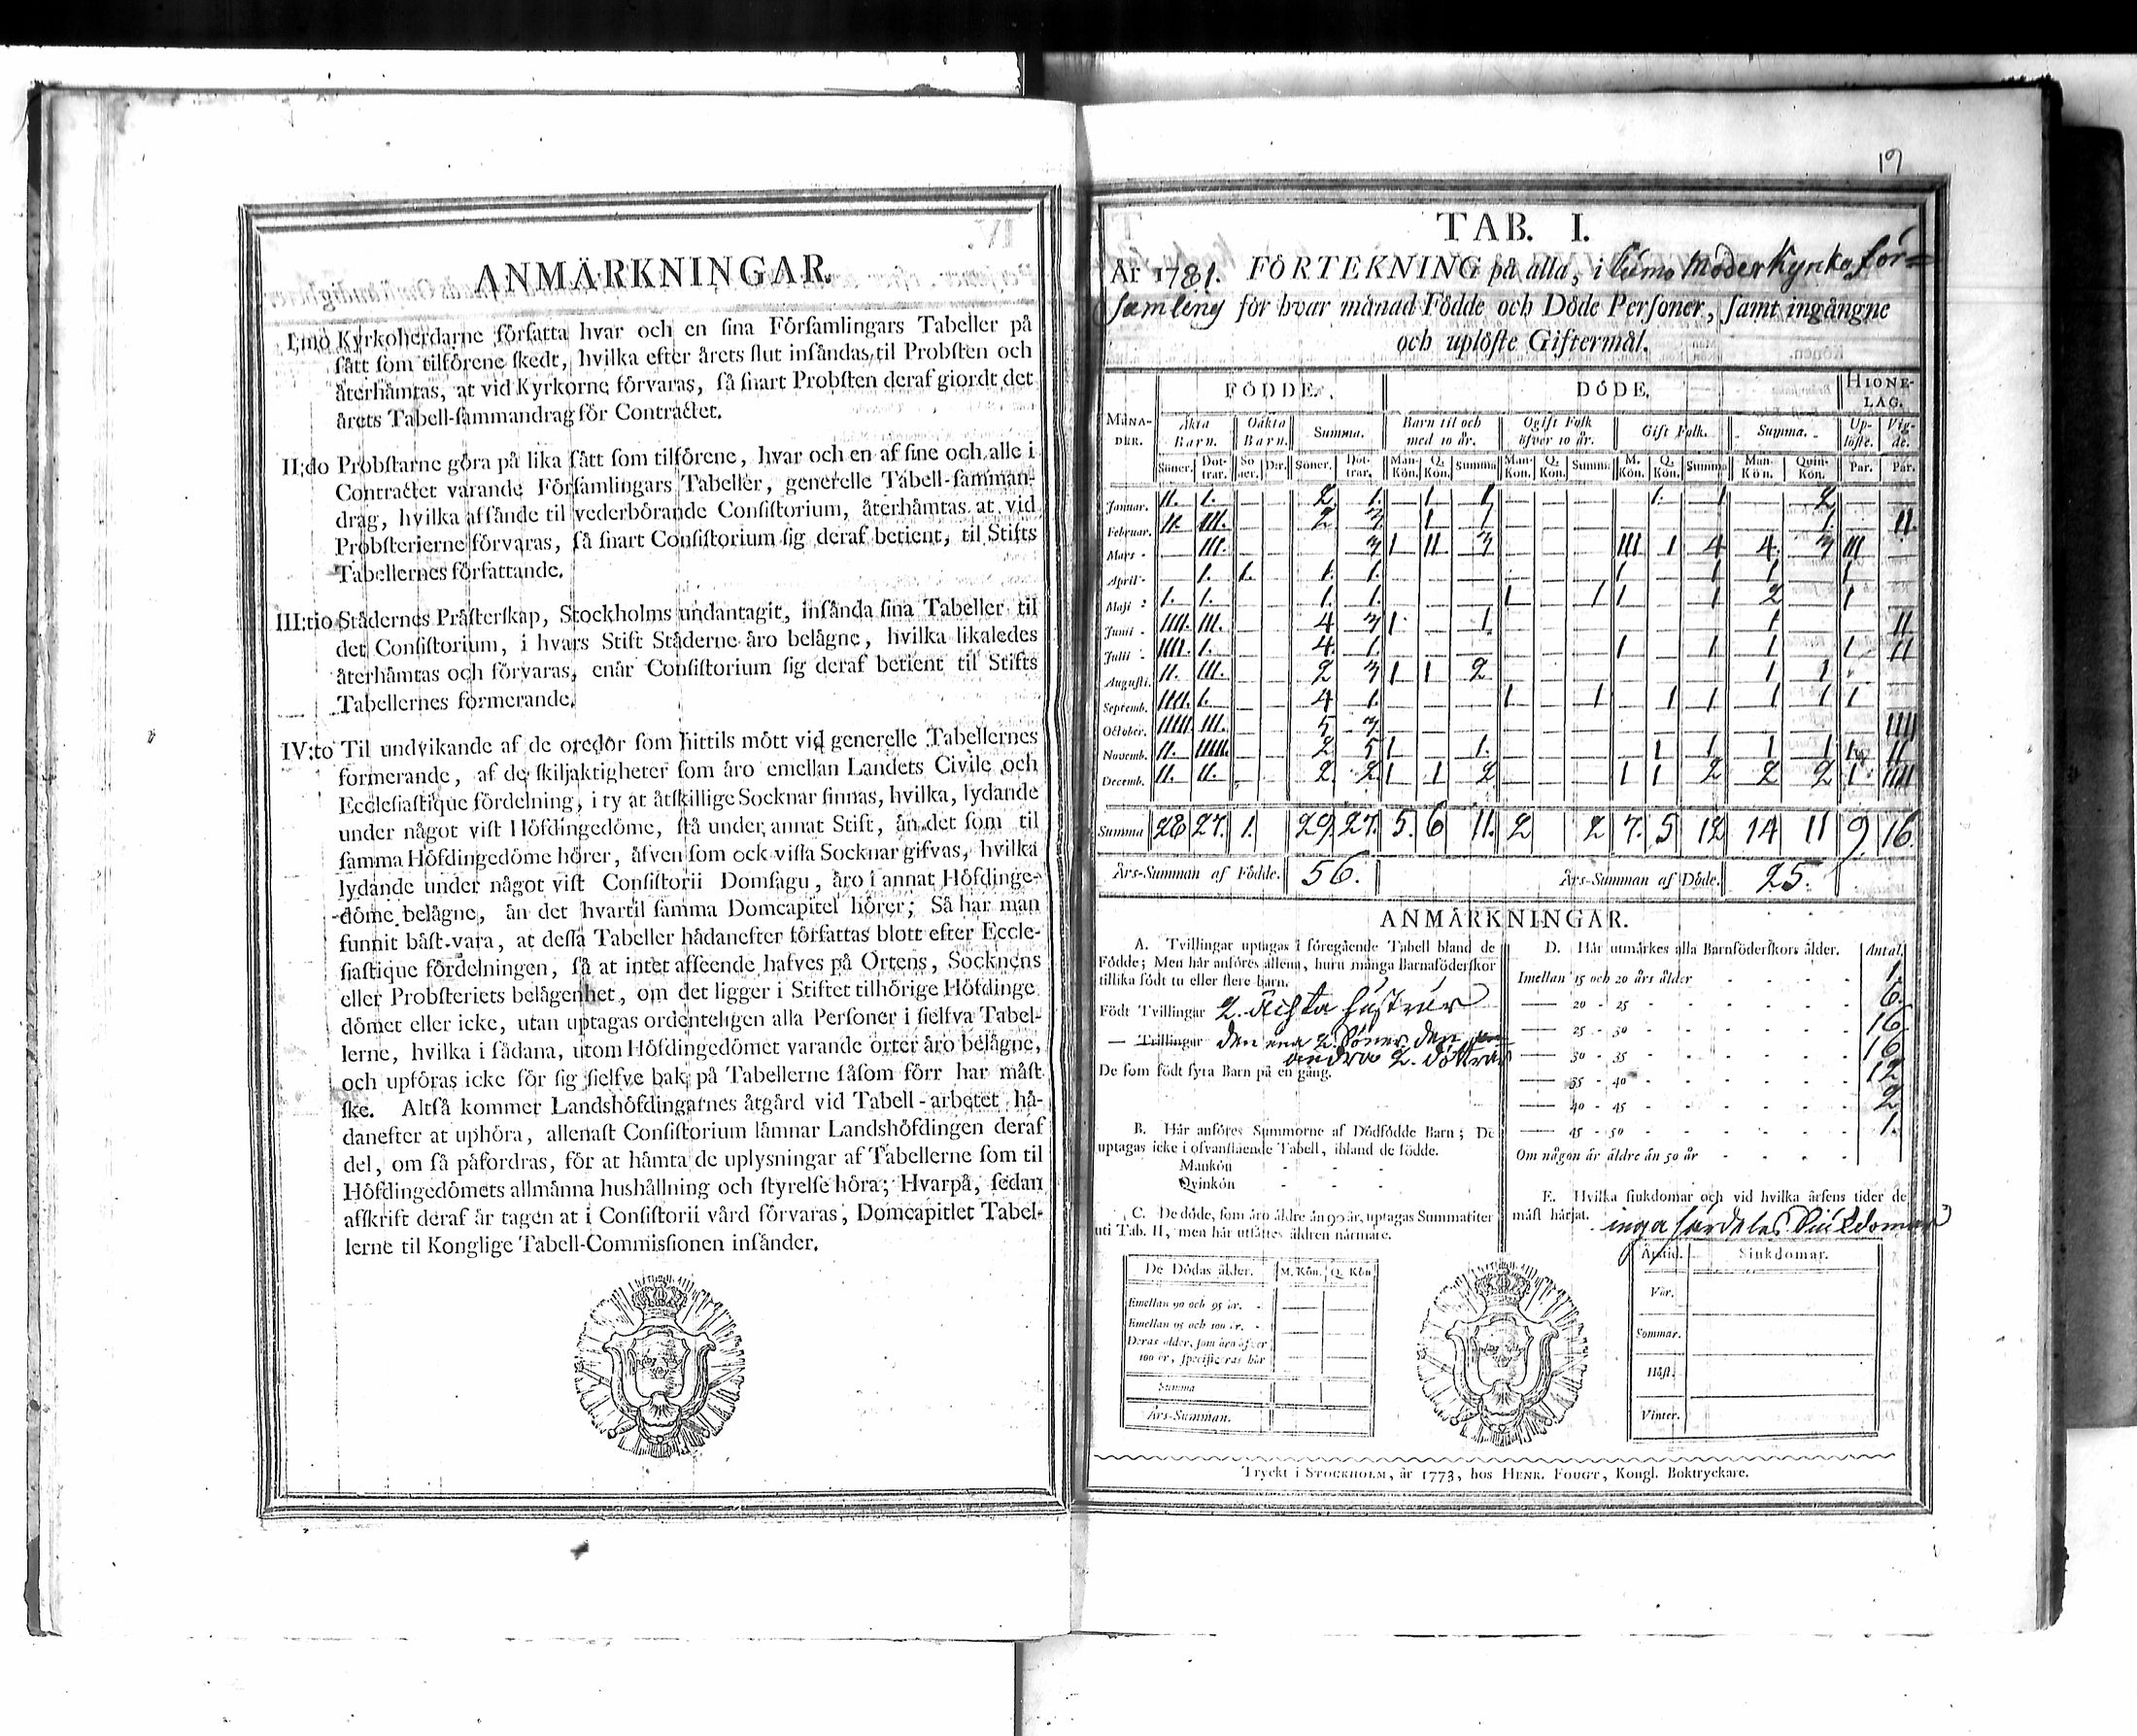 ANMÄRKNINGAR.
I:mo Kyrkoherdarne författa hvar och en sina Församlingars Tabeller på
sätt som tilförene skedt, hvilka efter årets slut insändas til Probsten och
återhämtas, at vid Kyrkorne förvaras, så snart Probsten deraf giordt det
årets Tabell-sammandrag för Contractet.
II:do Probstarne göra på lika sätt som tilförene, hvar och en af sine och alle i
Contractet varande Församlingars Tabeller, generelle Tabell-samman-
drag, hvilka afsände til vederbörande Consistorium, återhämtas at vid
Probsterierne förvaras, så snart Consistorium sig deraf betient, til Stifts
Tabellernes författande.
III:tio Städernes Prästerskap, Stockholms undantagit, insända sina Tabeller til
det Consistorium, i hvars Stift Städerne äro belägne, hvilka likaledes
återhämtas och förvaras, enär Consistorium sig deraf betient til Stifts
Tabellernes formerande.
IV:to Til undvikande af de oredor som hittils mött vid generelle Tabellernes
formerande, af de skiljaktigheter som äro emellan Landets Civile och
Ecclesiastique fördelning, i ty at åtskillige Socknar finnas, hvilka, lydande
under något vist Höfdingedöme, stå under annat Stift, än det som til
samma Höfdingedöme hörer, äfven som ock vissa Socknar gifvas, hvilka
lydande under något vist Consistorii Domsagu, äro i annat Höfdinge-
döme belägne, än det hvartil samma Domcapitel hörer; Så har man
funnit bäst vara, at dessa Tabeller hädanefter författas blott efter Eccle-
siastique fördelningen, så at intet afseende hafves på Ortens, Socknens
eller Probsteriets belägenhet, om det ligger i Stiftet tilhörige Höfdinge
dömet eller icke, utan uptagas ordenteligen alla Personer i sielfva Tabel-
lerne, hvilka i sådana, utom Höfdingedömet varande orter äro belägne,
och upföras icke för sig sielfve bak på Tabellerne såsom förr har måst
ske. Altså kommer Landshöfdingarnes åtgärd vid Tabell-arbetet hä-
danefter at uphöra, allenast Consistorium lämnar Landshöfdingen deraf
del, om så påfordras, för at hämta de uplysningar af Tabellerne som til
Höfdingedömets allmänna hushållning och styrelse höra; Hvarpå, sedan
afskrift deraf är tagen at i Consistorii vård förvaras, Domcapitlet Tabel-
lerne til Konglige Tabell-Commissionen insänder.
TAB. I.
År 1781. FÖRTEKNING på alla, i Kumo Moder Kyrko för=
samling för hvar månad Födde och Döde Personer, samt ingångne
och uplöste Giftermål.
FÖDDE. DÖDE. HIONE-
LAG.
MÅNA-
DER. Äkta
Barn. Oäkta
Barn. Summa. Barn til och
med 10 år. Ogift Folk
öfver 10 år. Gift Folk. Summa. Up-
löste. Vig-
de.
Söner. Döt-
trar. So
ner. Dtr. Söner. Döt-
trar. Man-
Kön. Q.
Kön. Summa Man-
Kön. Q.
Kön. Summa M.
Kön. Q.
Kön. Summa Man-
Kön. Quin-
Kön. Par. Par.
Januar. II. I. 2. 1. 1 1 1. 1 2
Februar. II. III. 2 3. 1 1 1. II
Mars III. 3 1 II 3 III 1 4 4. 3 III
April 1. 1. 1. 1. 1 1 1 1
Maji 1. 1. 1. 1. 1 1 1 1 2 1
Junii IIII. III. 4 3 1 1. 1 II
Julii IIII. 1. 4. 1. 1 1 1 1 II
Augusti. II. III. 2 3 1 1 2 1 1
Septemb. IIII. 1. 4 1. 1 1 1 1 1 1 1
October. IIIII. III. 5 3. IIII
Novemb. II. IIIII. 2 5 1 1. 1 1 1 1 1. II
Decemb. II. II. 2. 2 1 1 2 1 1 2 2 2 1. IIII
Summa 28 27. 1. 29 27. 5. 6 11. 2 2 7. 5 12 14 11 9. 16.
Års-Summan af Födde. 56. Års-Summan af Döde. 25.
ANMÄRKNINGAR.
A. Tvillingar uptagas i föregående Tabell bland de
Födde; Men här anföres allena, huru många Barnaföderskor
tillika födt tu eller flere barn.
Födt Tvillingar 2. Ächta hustrur
— Trillingar den ena 2. Söner. den
andra 2. döttrar
De som födt fyra Barn på en gång.
B. Här anföres Summorne af Dödfödde Barn; De
uptagas icke i ofvanstående Tabell, ibland de födde.
Mankön
Qvinkön
C. De döde, som äro äldre än 90 år, uptagas Summatiter
uti Tab. II, men här utsättes åldren närmare.
De Dödas ålder. M. Kön. Q. Kön
Emellan 90 och 95 år.
Emellan 95 och 100 år.
Deras ålder, som äro öfver
100 år, specificeras här
Summa
Års-Summan.
D. Här utmärkes alla Barnföderskors ålder. Antal.
Imellan 15 och 20 års ålder 1.
— 20 - 25 6.
— 25 - 30 16
— 30 - 35 16
— 35 - 40 12
— 40 - 45 2
— 45 - 50 1.
Om någon är äldre än 50 år
E. Hvilka siukdomar och vid hvilka årsens tider de
mäst härjat. inga särdeles Siukdomar
Årstid. Siukdomar.
Vår.
Sommar.
Höst.
Vinter.
Tryckt i STOCKHOLM, år 1773, hos HENR. FOUGT, Kongl. Boktryckare.